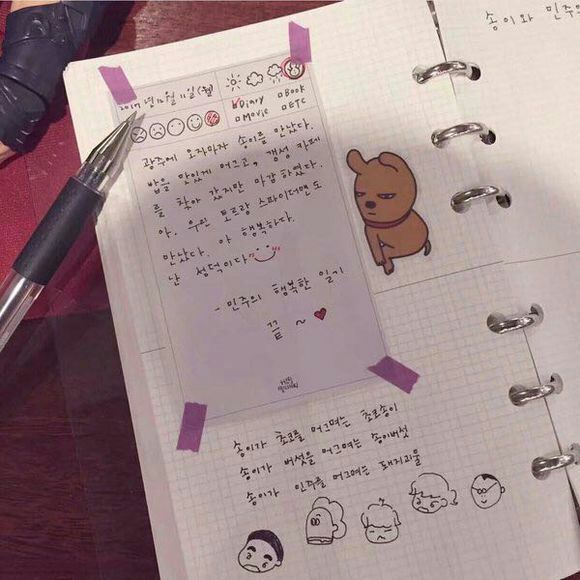 송이와 민주의
2017년 12월 11일 (월)
☑Diary □Book
□Movie □ETC
광주에 오자마자 송이를 만났다.
밥을 맛있게 머그고, 갬성 카페
를 찾아 갔지만 마감하였다.
아. 우린 토르랑 스파이더맨도
만났다. 아 행복하다.
난 성덕이다"
- 민주의 행복한 일기
끝 ~ ♥
송이가 초코를 머그며는 초코송이
송이가 버섯을 머그며는 송이버섯
송이가 민주를 머그며는 돼지괴물